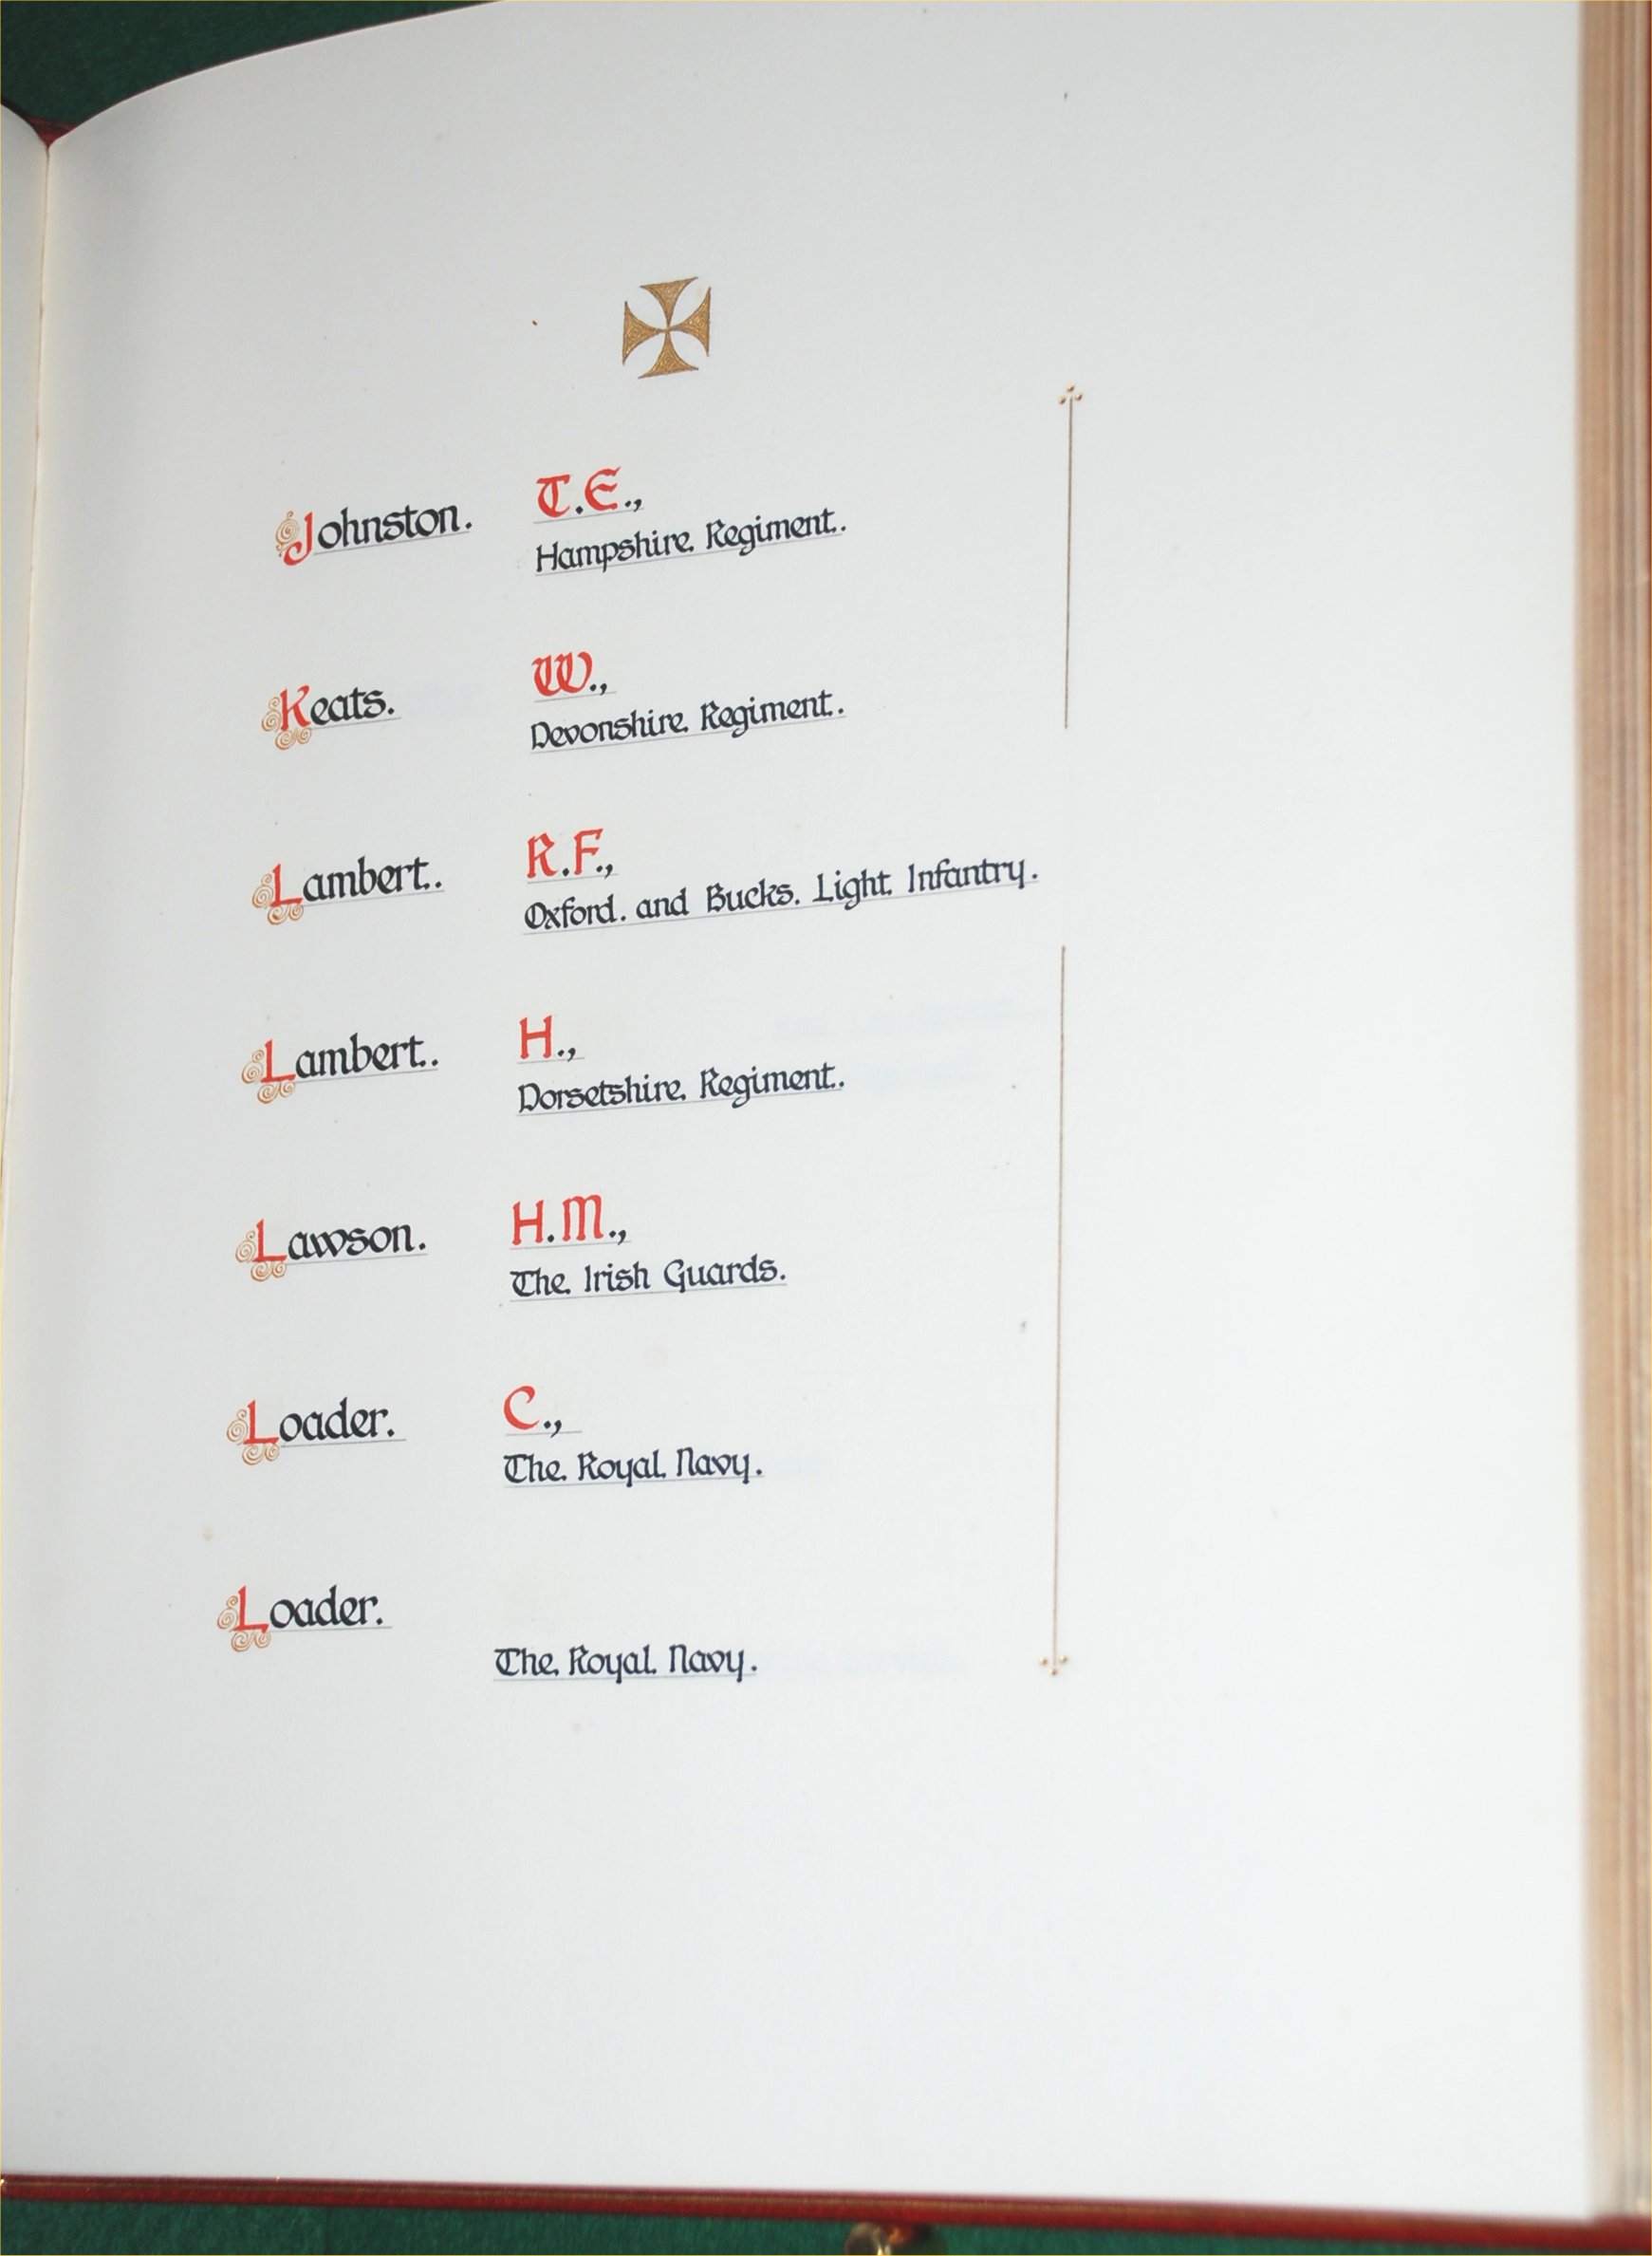 Johnston. T.E.,
Hampshire. Regiment..
Keats. W.,
Devonshire. Regiment..
Lambert.. R.F.,
Oxford. and Bucks. Light. Infantry.
Lambert.. H.,
Dorsetshire. Regiment..
Lawson. H.M.,
The. Irish Guards.
Loader. C.,
The. Royal. Navy.
Loader.
The. Royal. Navy.